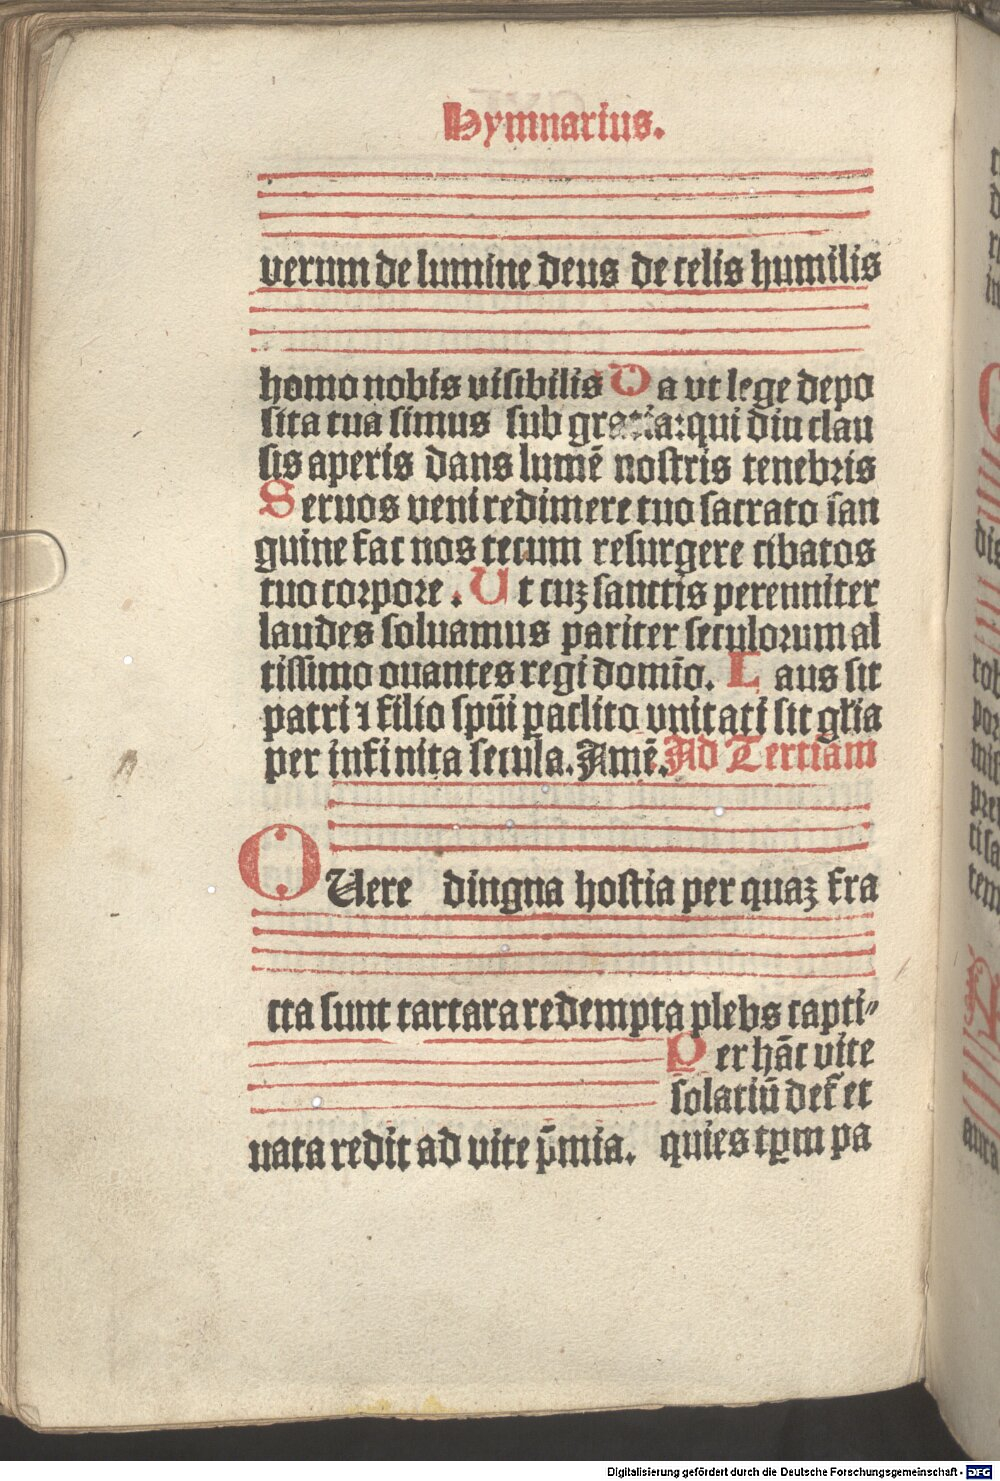 Hymnarius.
verum de lumine deus de celis humilis
homo nobis visibilis Da vt lege depo
sita tua simus sub gratia: qui diu clau
sis aperis dans lumē nostris tenebris
Seruos veni redimere tuo sacrato san
guine fac nos tecum resurgere cibatos
tuo corpore. Ut cuꝫ sanctis perenniter
laudes soluamus pariter seculorum al
tissimo ouantes regi domīo. Laus sit
patri ⁊ filio spūi paclito vnitati sit glīa
per infinita secula. Amē. Ad Tertiam
O Uere dingna hostia per quaꝫ fra
cta sunt tartara redempta plebs capti⸗
Per hāc vite
solatiū def̄ et
uata redit ad vite p̄mia. quies tꝑm pa
Digitalisierung gefördert durch die Deutsche Forschungsgemeinschaft - DFG